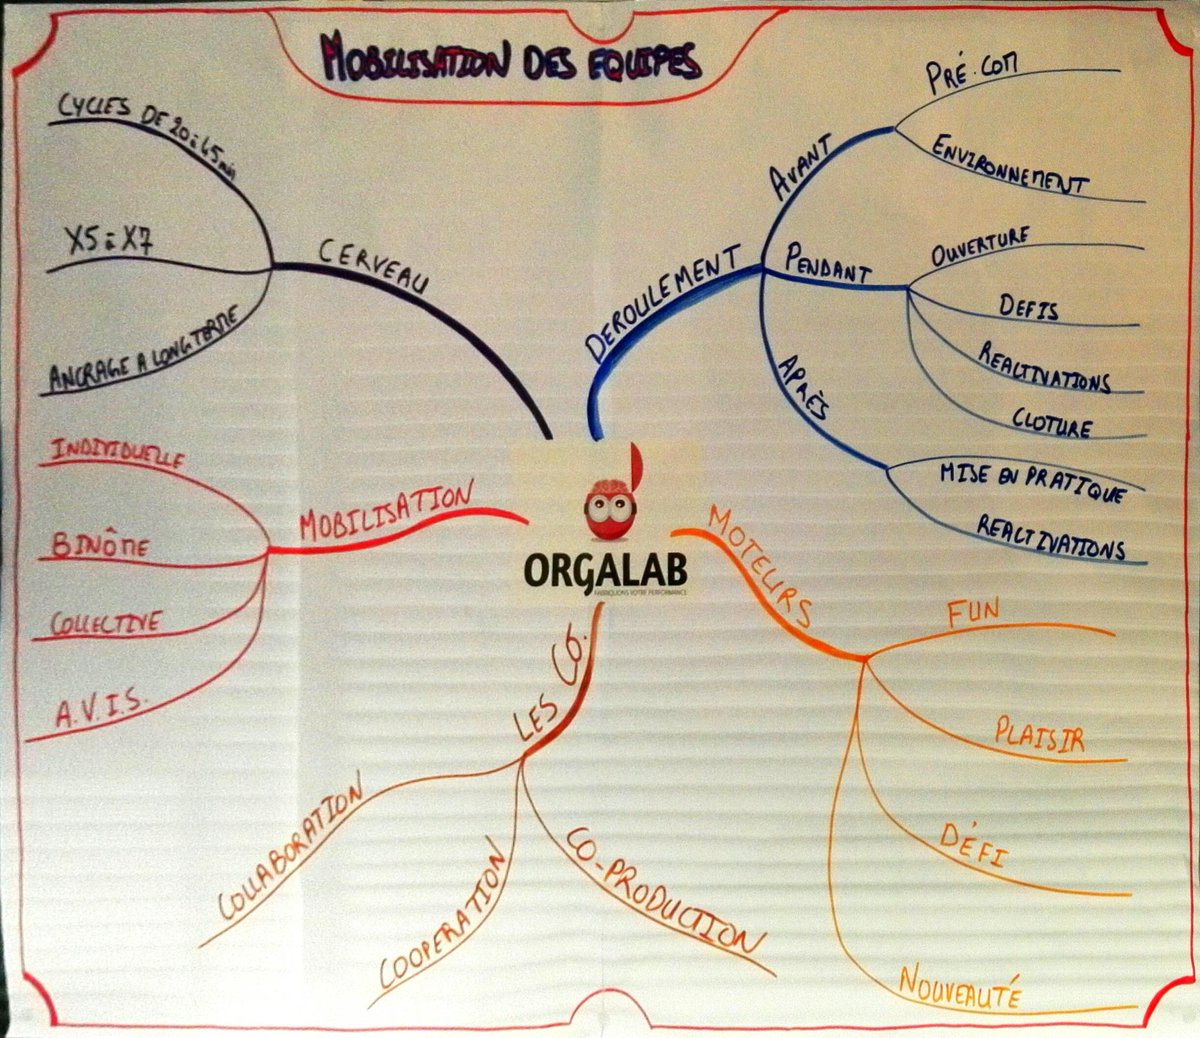 MOBILISATION DES EQUIPES
DEROULEMENT
AVANT
PRÉ.COM
ENVIRONNEMENT
PENDANT
OUVERTURE
DEFIS
REACTIVATIONS
CLOTURE
APRÈS
MISE EN PRATIQUE
REACTIVATIONS
MOTEURS
FUN
PLAISIR
DÉFI
NOUVEAUTÉ
LES CO.
CO-PRODUCTION
COOPERATION
COLLABORATION
MOBILISATION
INDIVIDUELLE
BINÔME
COLLECTIVE
A.V.I.S.
CERVEAU
CYCLES DE 20 à 45 min
X5 à X7
ANCRAGE A LONG TERME
ORGALAB
FABRIQUONS VOTRE PERFORMANCE